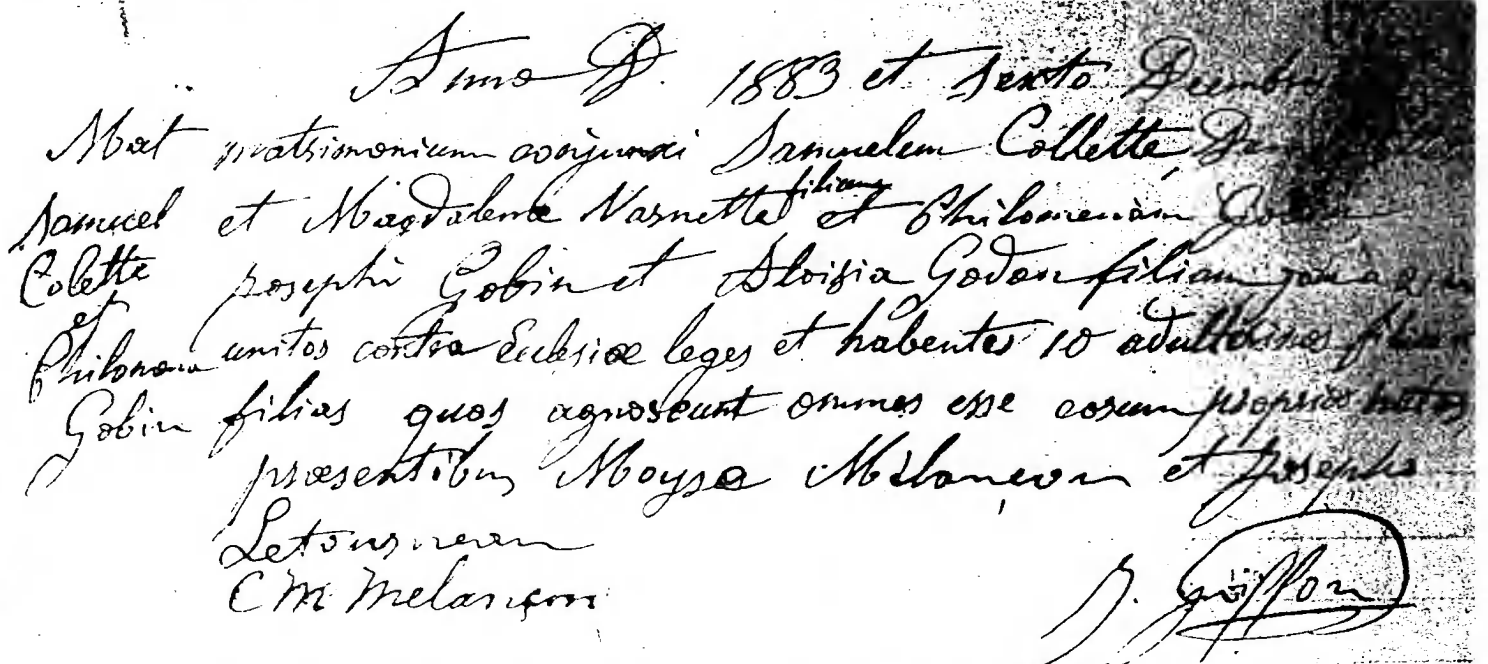 Anno D. 1883 et Sexto Decembris
Mat
Samuel
Colette
et
Philomena
Gobin
matrimonium conjunxi Samuelem Collette,
et Magdalenæ Varnette filium et Philomenam
Josephi Gobin et Aloisia Godon filiam jam a
unitos contra Ecclesiæ leges et habentes 10 adultasnes
filias quos agnoscunt omnes esse eorum proprios natos
præsentibus Moyse Mélançon et Josepho
Letourneau
C M Melançon
J. Goiffon